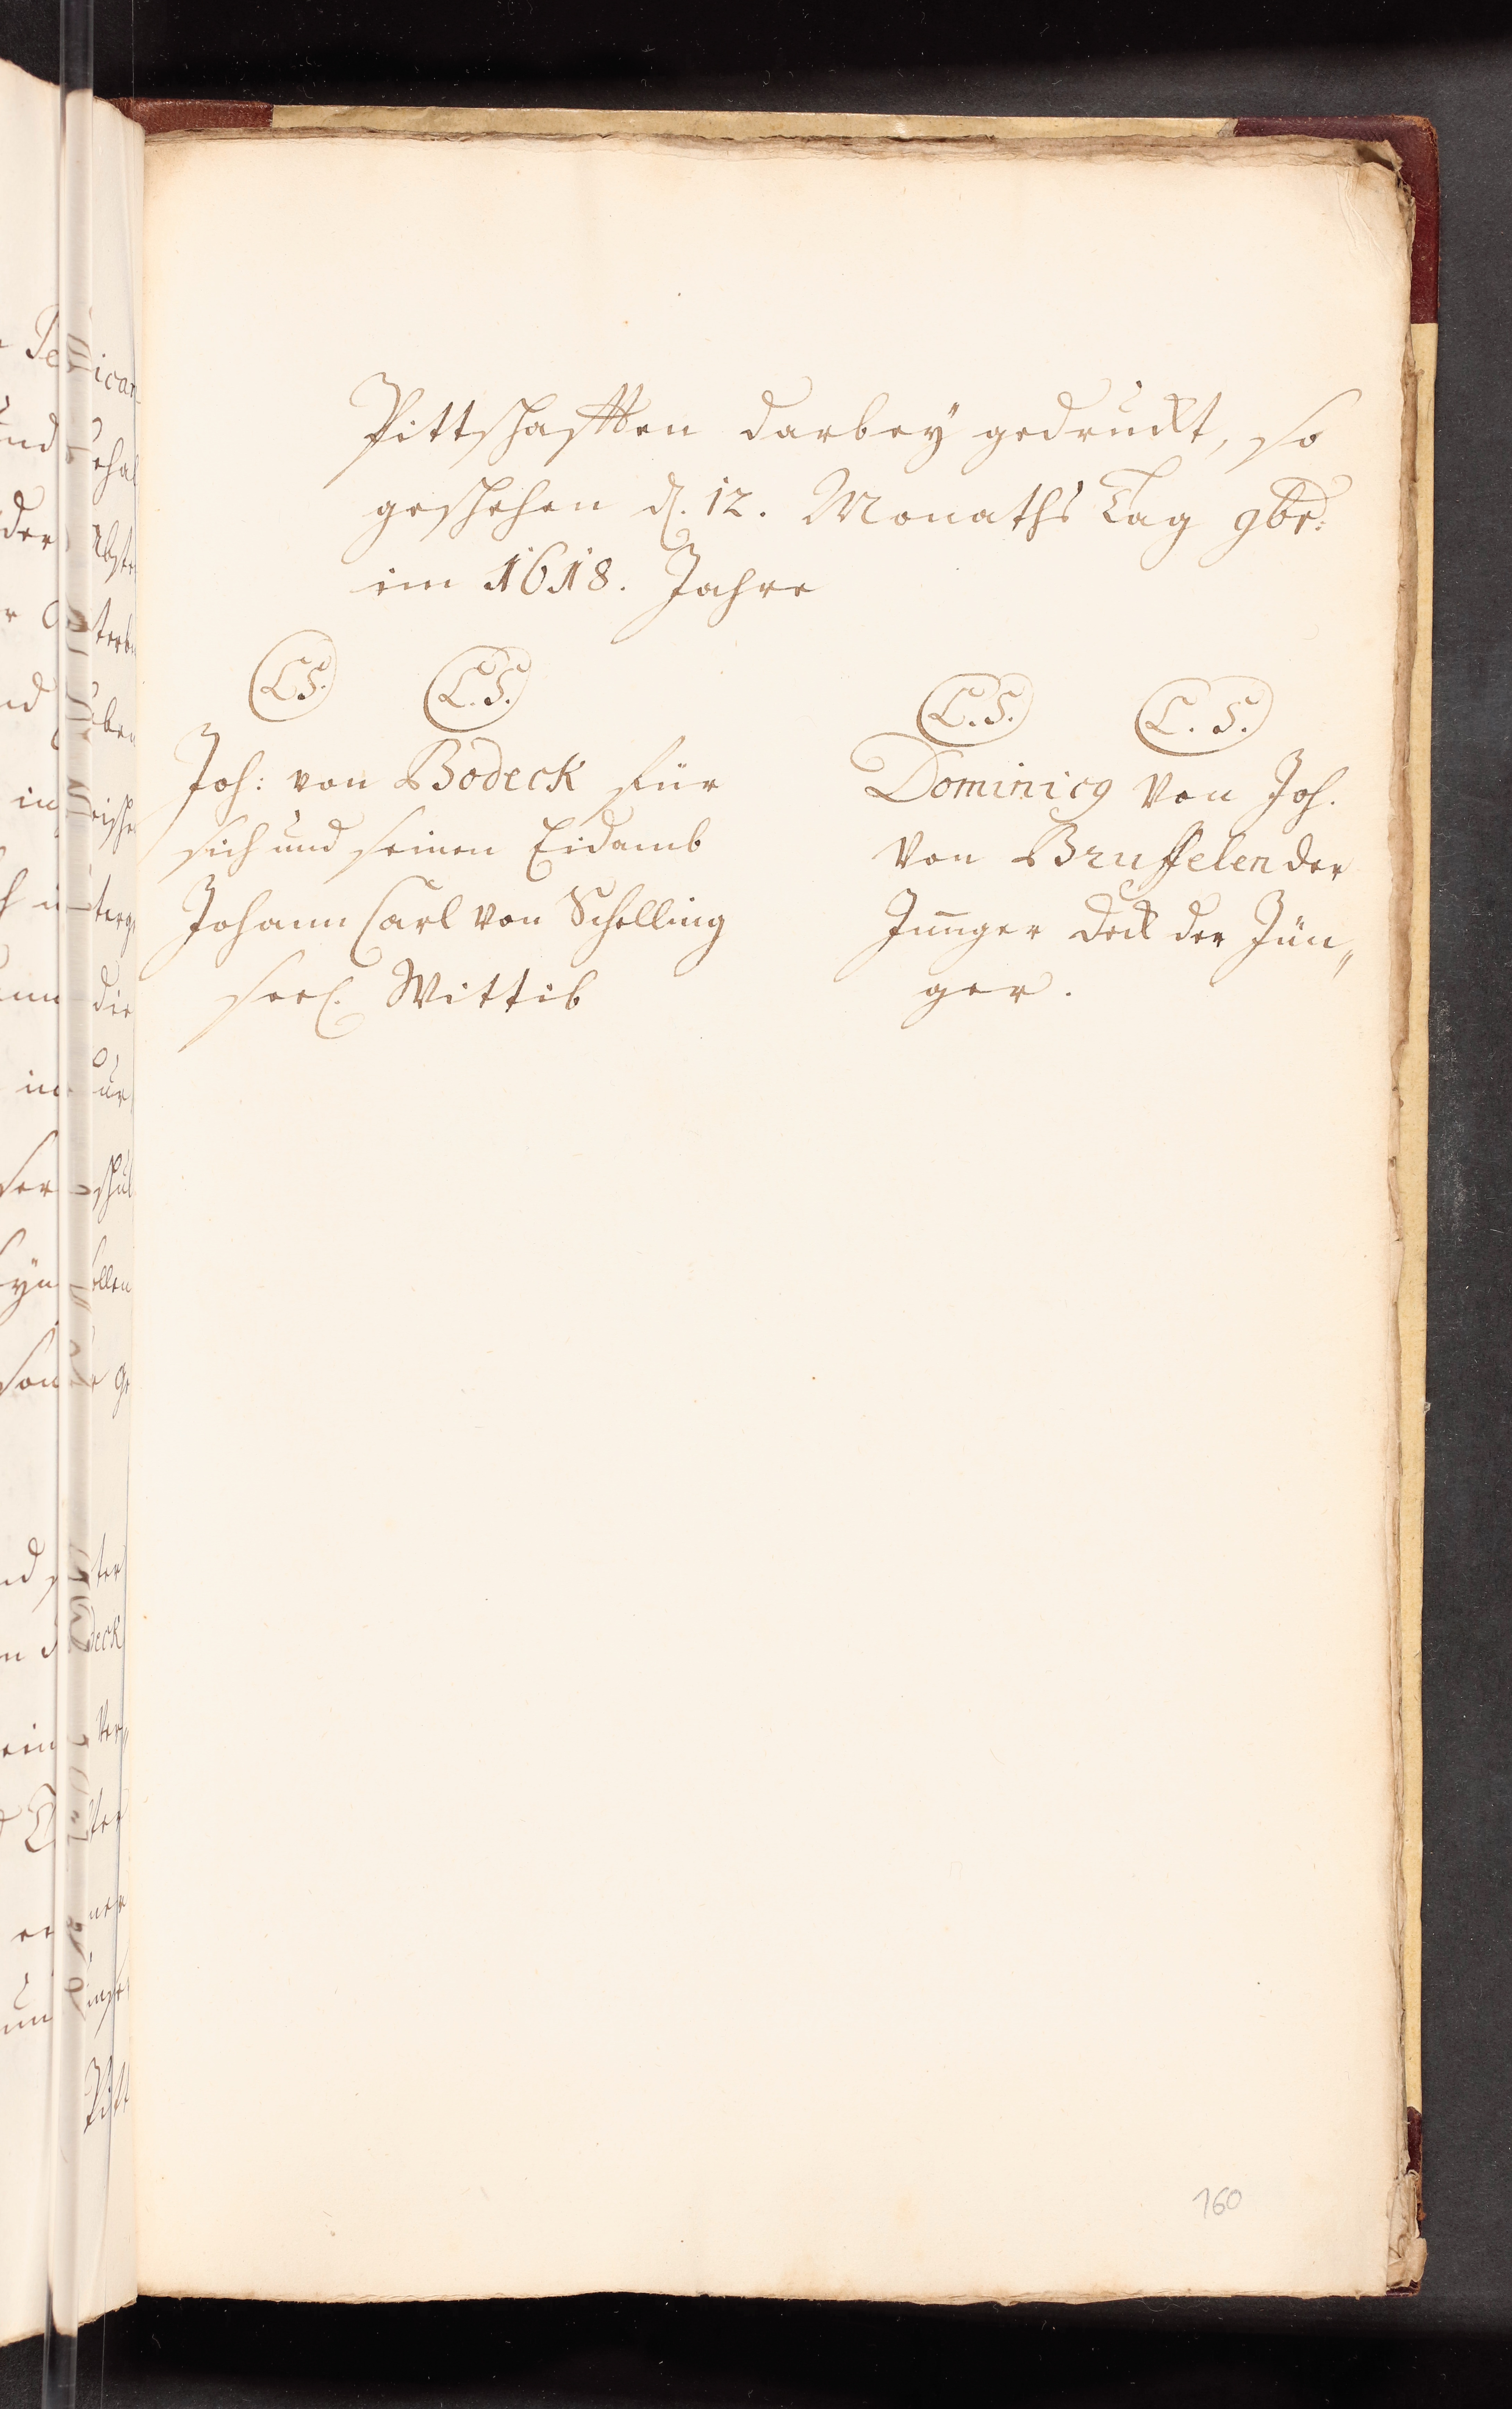 Pittschafften darbey gedruckt, so
geschehen d. 12. Monaths Tag 9br:
im 1618. Jahre
L.S. L.S.
Joh: von Bodeck für
sich und seinen Eidamb
Johann Carl von Schelling
seel. Wittib
L.S. L.S.
Dominicq von Joh.
von Brusselen der
Junger Deck der Jün„
ger.
160